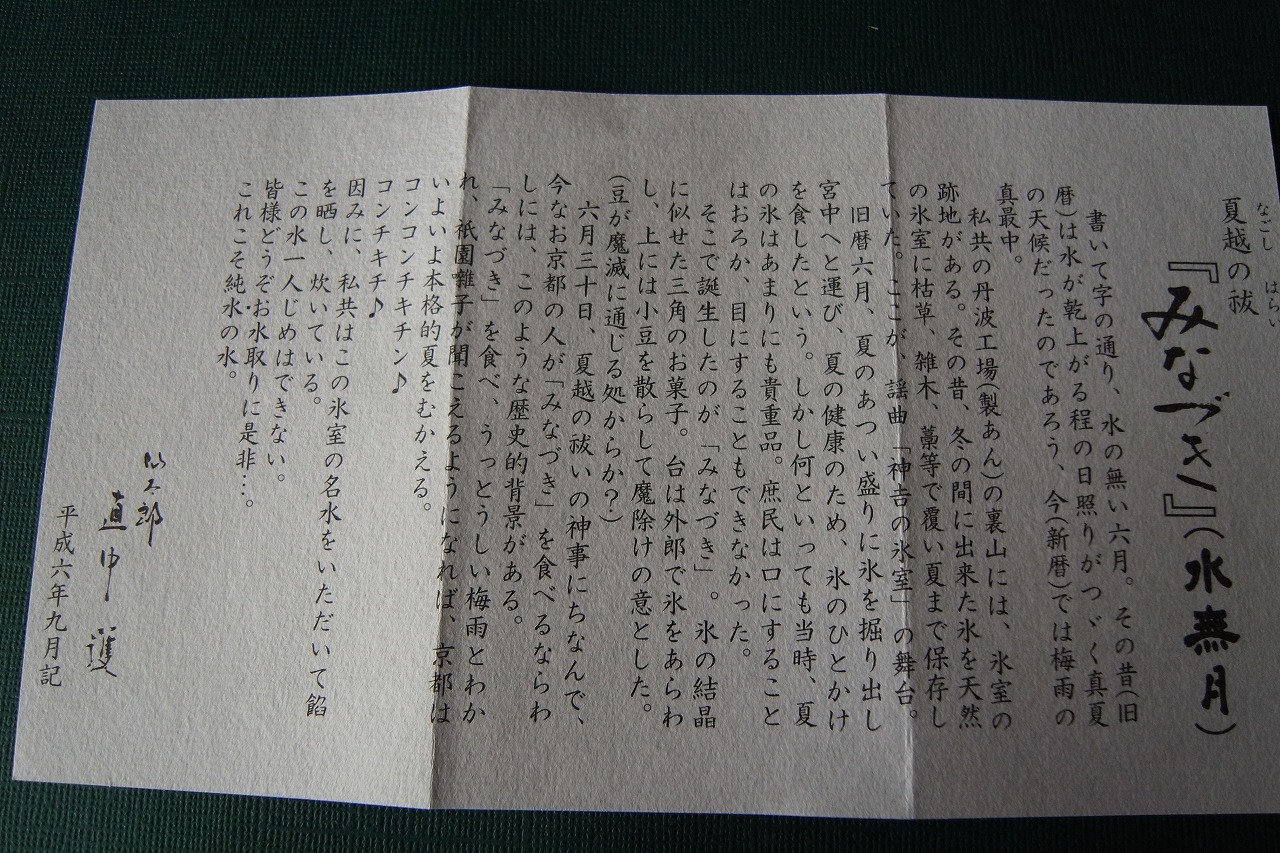 夏越の祓
なごし はらい
『みなづき』(水無月)
書いて字の通り、水の無い六月。その昔(旧
暦)は水が乾上がる程の日照りがつゞく真夏
の天候だったのであろう、今(新暦)では梅雨の
真最中。
私共の丹波工場(製あん)の裏山には、氷室の
跡地がある。その昔、冬の間に出来た氷を天然
の氷室に枯草、雑木、藁等で覆い夏まで保存し
ていた。ここが、謡曲「神吉の氷室」の舞台。
旧暦六月、夏のあつい盛りに氷を掘り出し
宮中へと運び、夏の健康のため、氷のひとかけ
を食したという。しかし何といっても当時、夏
の氷はあまりにも貴重品。庶民は口にすること
はおろか、目にすることもできなかった。
そこで誕生したのが「みなづき」。氷の結晶
に似せた三角のお菓子。台は外郎で氷をあらわ
し、上には小豆を散らして魔除けの意とした。
(豆が魔滅に通じる処からか?)
六月三十日、夏越の祓いの神事にちなんで、
今なお京都の人が「みなづき」を食べるならわ
しには、このような歴史的背景がある。
「みなづき」を食べ、うっとうしい梅雨とわか
れ、祇園囃子が聞こえるようになれば、京都は
いよいよ本格的夏をむかえる。
コンコンチキチン♪
コンチキチ♪
因みに、私共はこの氷室の名水をいただいて餡
を晒し、炊いている。
この水一人じめはできない。
皆様どうぞお水取りに是非…。
これこそ純水の水。
直中 護
平成六年九月記